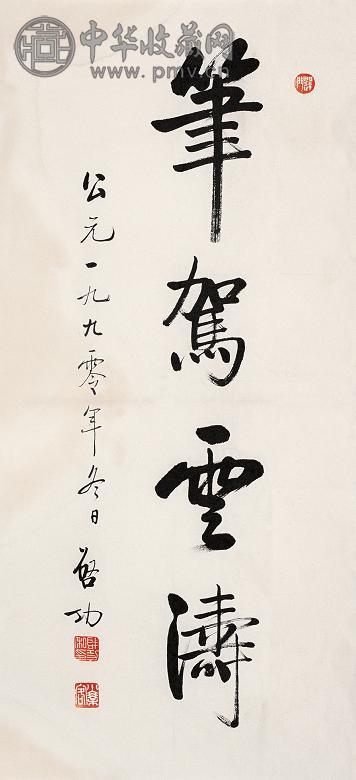 中华收藏网
www.pmv.cn
筆駕雲濤
公元一九九零年冬日
啓功